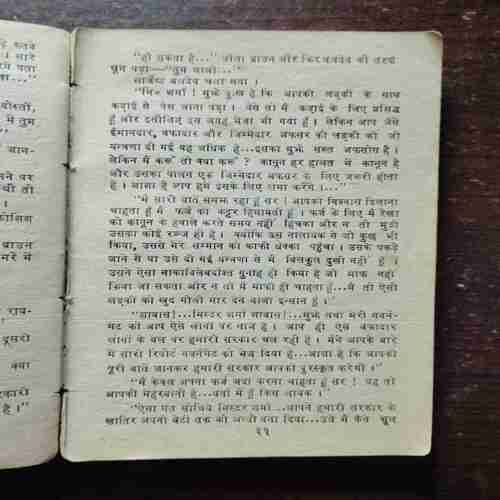 "हो सकता है..." जौना ब्राउन और फिर बलदेव की तरफ
घूम पड़ा—"तुम जाओ..."
सार्जेन्ट बलदेव चला गया ।
"मि० शर्मा ! मुझे दुःख है कि आपकी लड़की के साथ
कड़ाई से पेश आना पड़ा । वैसे तो मैं कड़ाई के लिए प्रसिद्ध
हूं और इसीलिए इस जगह भेजा भी गया हूं । लेकिन आप जैसे
ईमानदार, वफादार और जिम्मेदार अफसर की लड़की को जो
यन्त्रणा दी गई वह अधिक है...इसका मुझे सख्त अफसोस है ।
लेकिन मैं करूं तो क्या करूं ? कानून हर हालत में कानून है
और उसका पालन एक जिम्मेदार अफसर के लिए जरूरी होता
है । आशा है आप हमें इसके लिए क्षमा करेंगे ।..."
"मैं सारी बात समझ रहा हूं सर ! आपको विश्वास दिलाना
चाहता हूं मैं फर्ज का कट्टर हिमायती हूं । फर्ज के लिए मैं रेखा
को कानून के हवाले करते समय नहीं हिचका और न तो मुझे
उसका कोई रन्ज ही है । क्योंकि उस नालायक ने जो कुछ भी
किया, उससे मेरे सम्मान को काफी धक्का पहुंचा । उसके पकड़े
जाने से या उसे दी गई यन्त्रणा से मैं बिल्कुल दुखी नहीं हूं ।
उसने ऐसा नाकाबिलेबर्दाश्त गुनाह ही किया है जो माफ नहीं
किया जा सकता और न तो मैं माफी ही चाहता हूं...मैं तो ऐसी
लड़की को खुद गोली मार देने वाला इन्सान हूं ।"
"शाबाश !...मिस्टर शर्मा शाबाश !...मुझे तथा मेरी गवर्न-
मेंट को आप ऐसे लोगों पर नाज है । आप ही ऐसे वफादार
लोगों के बल पर हमारी सरकार चल रही है । मैंने आपके बारे
में सारी रिपोर्ट गवर्नमेंट को भेज दिया है...आशा है कि आपकी
पूरी बातें जानकर हमारी सरकार आपको पुरस्कृत करेगी ।"
"मैं केवल अपना फर्ज अदा करना चाहता हूं सर ! यह तो
आपकी मेहरबानी है...वर्ना मैं हूं किस लायक ।"
"ऐसा मत सोचिये मिस्टर शर्मा...आपने हमारी सरकार के
खातिर अपनी बेटी तक को जता दिया...उसे मैं कैसे भूल
३५